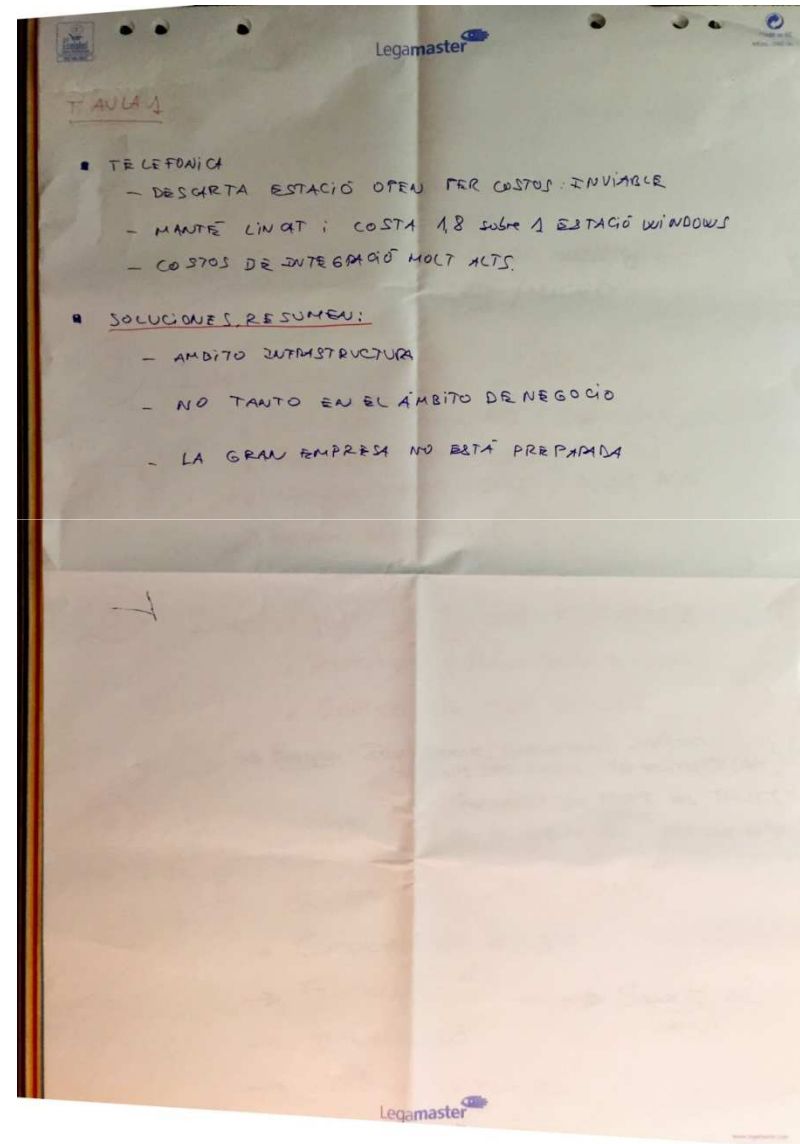 Legamaster
T. AULA 1
▪ TELEFONICA
– DESCARTA ESTACIÓ OPEN PER COSTOS: INVIABLE
– MANTÉ LINCAT i COSTA 1,8 sobre 1 ESTACIÓ WINDOWS
– COSTOS DE INTEGRACIÓ MOLT ALTS.
▪ SOLUCIONES, RESUMEN:
– AMBITO INFRASTRUCTURA
– NO TANTO EN EL ÁMBITO DE NEGOCIO
– LA GRAN EMPRESA NO ESTÁ PREPARADA
Legamaster